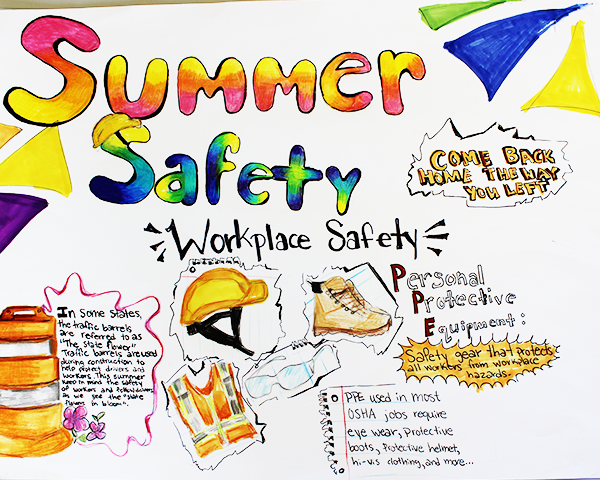 Summer
Safety
Workplace Safety
COME BACK
HOME THE WAY
YOU LEFT
Personal
Protective
Equipment:
Safety gear that protects
all workers from workplace
hazards.
In Some States,
the traffic barrels
are referred to as
"The state flower".
Traffic barrels are used
during construction to
help protect drivers and
workers. This summer
keep in mind the safety
of workers and fellow drivers
as we see the "state
flowers in bloom".
PPE used in most
OSHA jobs require
eye wear, protective
boots, protective helmet,
hi-vis clothing, and more...